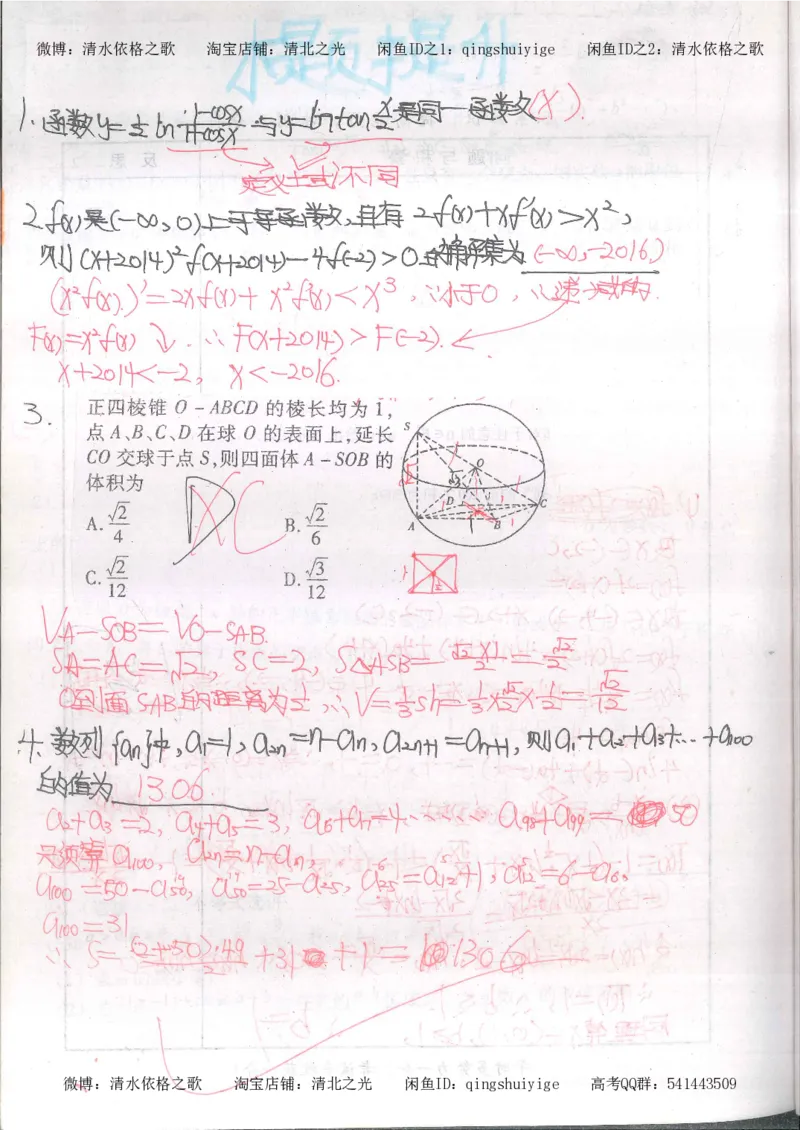 微博：清水依格之歌 淘宝店铺：清北之光 闲鱼ID之1：qingshuiyige 闲鱼ID之2：清水依格之歌
摸顶提升
1. 函数y=½ln (1-cosx)/(1+cosx) 与y=ln tan x/2 是同一函数(X).
定义域不同
2. f(x)是(-∞,0)上可导函数,且有 2f(x)+xf'(x)>x²,
则(x+2014)²f(x+2014)-4f(-2)>0的解集为 (-∞,-2016)
(x²f(x))'=2xf(x)+x²f'(x)<x³, ∴小于0, ∴递减的
F(x)=x²f(x) ↘. ∴F(x+2014)>F(-2).
x+2014<-2, x<-2016.
3. 正四棱锥 O-ABCD 的棱长均为 1,
点 A、B、C、D 在球 O 的表面上,延长
CO 交球于点 S,则四面体 A-SOB 的
体积为
A. √2/4 B. √2/6
C. √2/12 D. √3/12
S
O
D
C
A
B
V A-SOB=V O-SAB.
SA=AC=√2, SC=2, S△ASB=(√2×1)/2=√2/2
O到面SAB的距离为½, ∴V=⅓Sh=⅓×√2/2×½=√2/12
4. 数列{an}中,a1=1,a2n=n-an,a2n+1=an+1,则a1+a2+a3+…+a100
的值为 1306
a2+a3=2, a4+a5=3, a6+a7=4…… a98+a99=50
只须算a100, a2n=n-an,
a100=50-a50, a50=25-a25, a25=a12+1, a12=6-a6.
a100=31
∴S=(2+50)·49/2+31+1=1306
微博：清水依格之歌 淘宝店铺：清北之光 闲鱼ID：qingshuiyige 高考QQ群：541443509